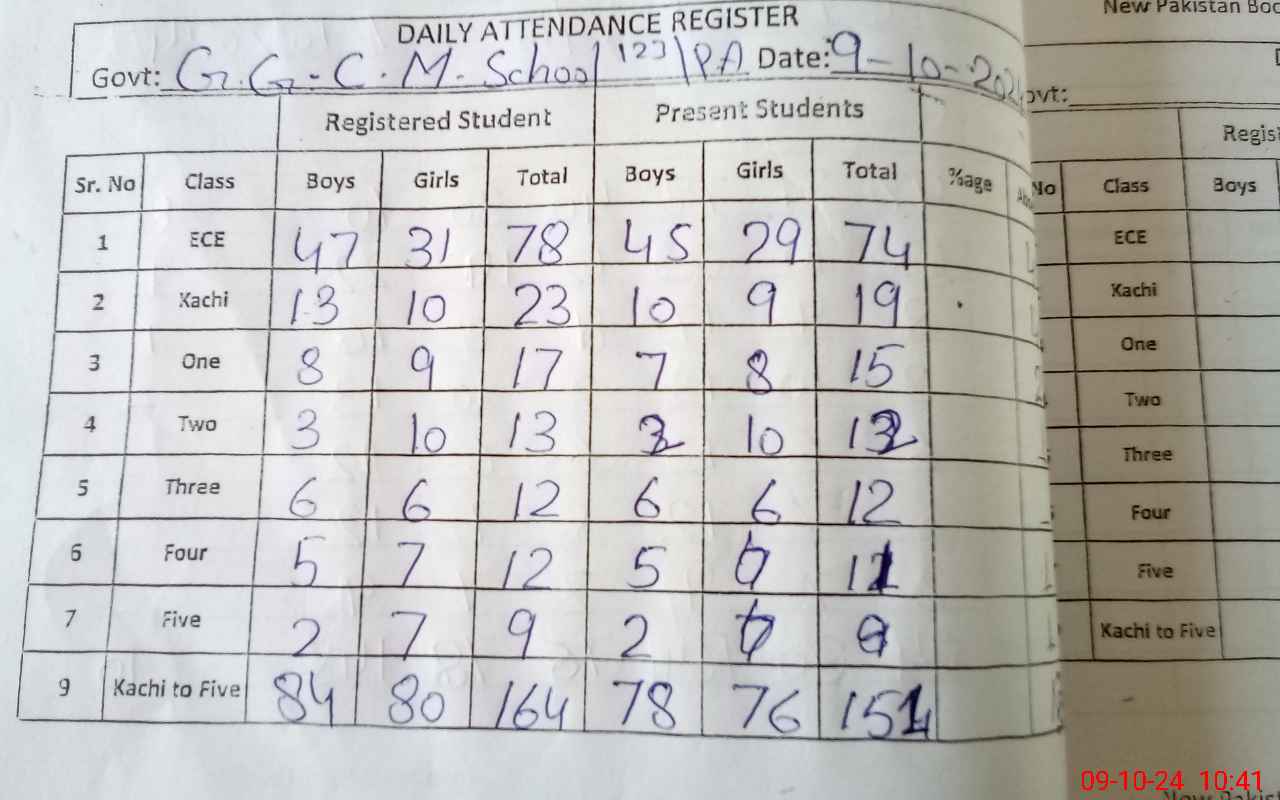 DAILY ATTENDANCE REGISTER
Govt: G.G.C.M. School 123/PA Date: 9-10-2024
Registered Student Present Students
Sr. No Class Boys Girls Total Boys Girls Total %age
1 ECE 47 31 78 45 29 74
2 Kachi 13 10 23 10 9 19
3 One 8 9 17 7 8 15
4 Two 3 10 13 2 10 12
5 Three 6 6 12 6 6 12
6 Four 5 7 12 5 11
7 Five 2 7 9 2
9 Kachi to Five 84 80 164 78 76 151
New Pakistan Boo
ovt:
Regist
No Class Boys
ECE
Kachi
One
Two
Three
Four
Five
Kachi to Five
09-10-24 10:41